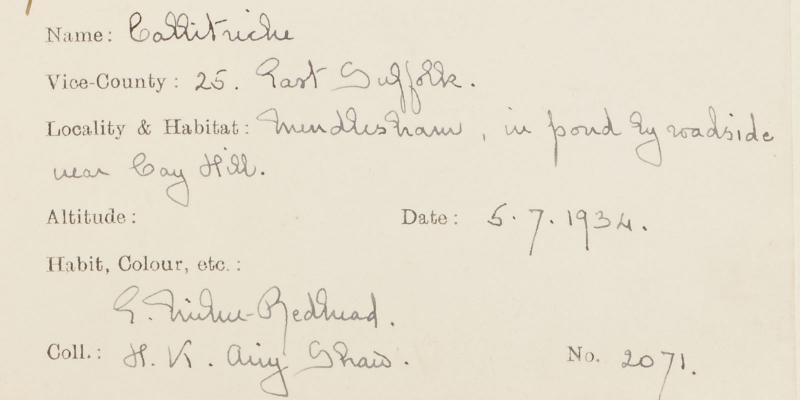 Name: Callitriche
Vice-County: 25. East Suffolk.
Locality & Habitat: Mendlesham, in pond by roadside
near Cay Hill.
Altitude:
Date: 5.7.1934.
Habit, Colour, etc.:
E. Milne-Redhead.
Coll.: H. K. Airy Shaw.
No. 2071.